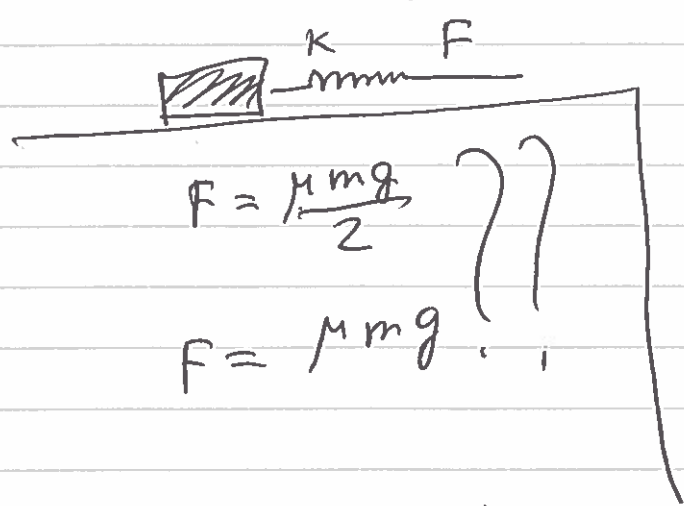 K F
F = μmg/2
F = μmg ??